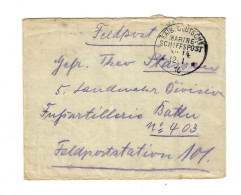 Feldpost
KAIS. DEUTSCHE
MARINE-
SCHIFFSPOST
12.1
Gefr. Theo
5. Landwehr Division
Fußartillerie Batln
No 403
Feldpoststation 101.